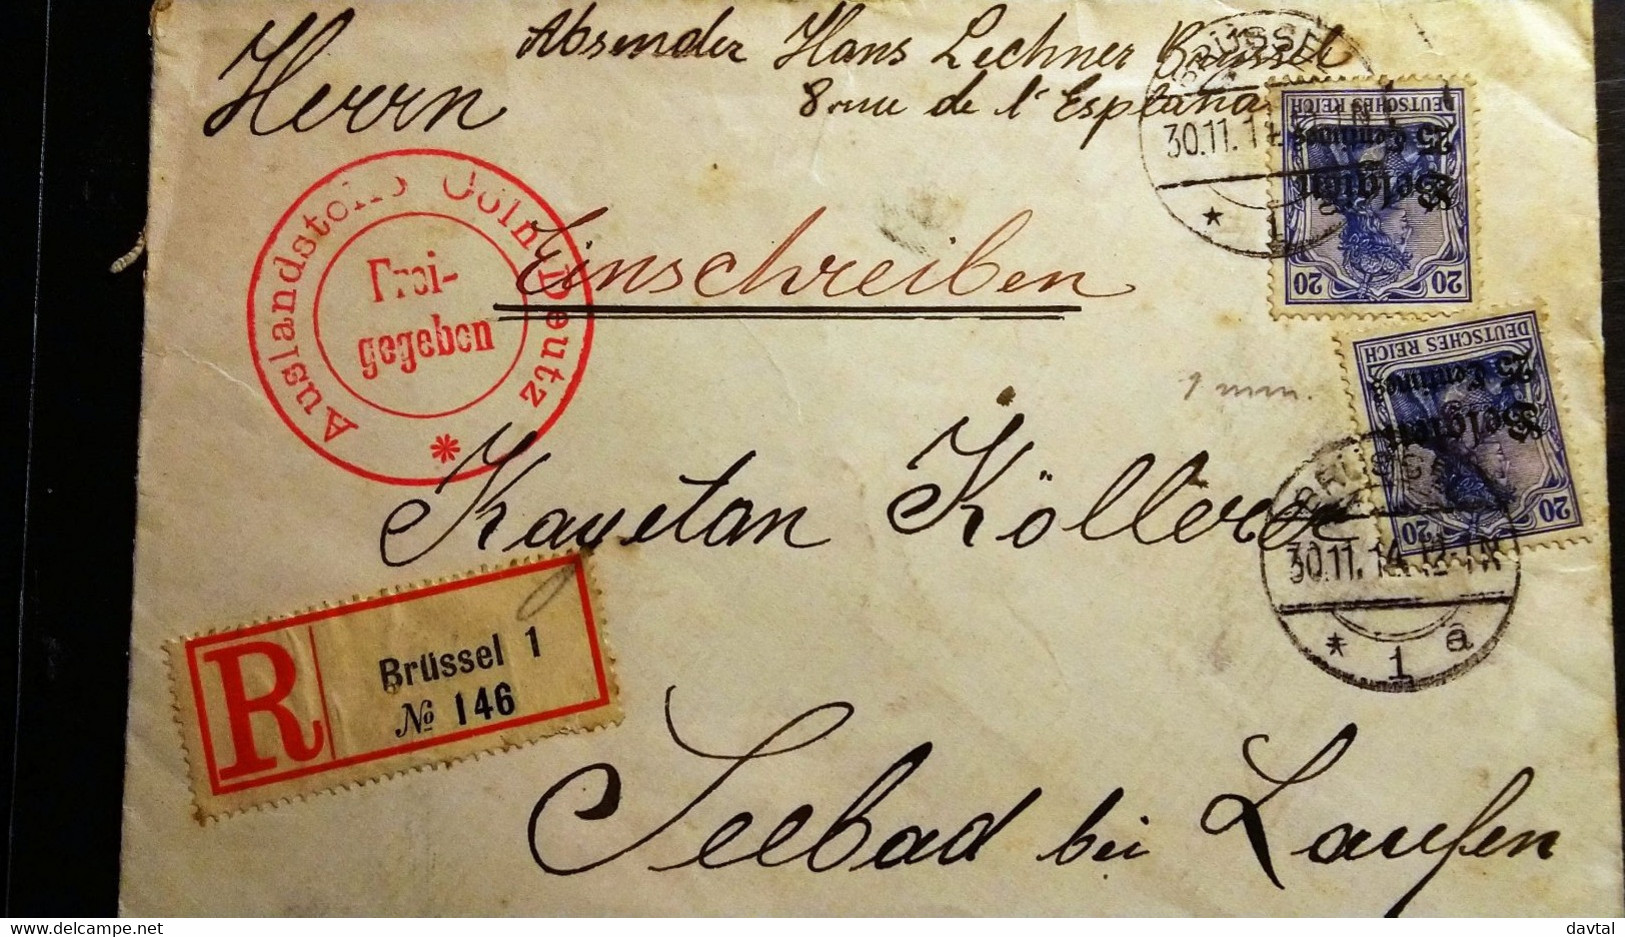 Absender Hans Lechner Brüssel
8 rue de l'Esplana
Herrn
Einschreiben
Auslandstelle Cöln Deutz
Frei-
gegeben
DEUTSCHES REICH
Belgien
25 Centimes
20 20
BRÜSSEL
30.11.14
DEUTSCHES REICH
Belgien
25 Centimes
20 20
BRÜSSEL
30.11.14. 12-1N
* 1 a
1 mm.
Kayetan Köllerer
R
Brüssel 1
№ 146
Seebad bei Laufen
davtal